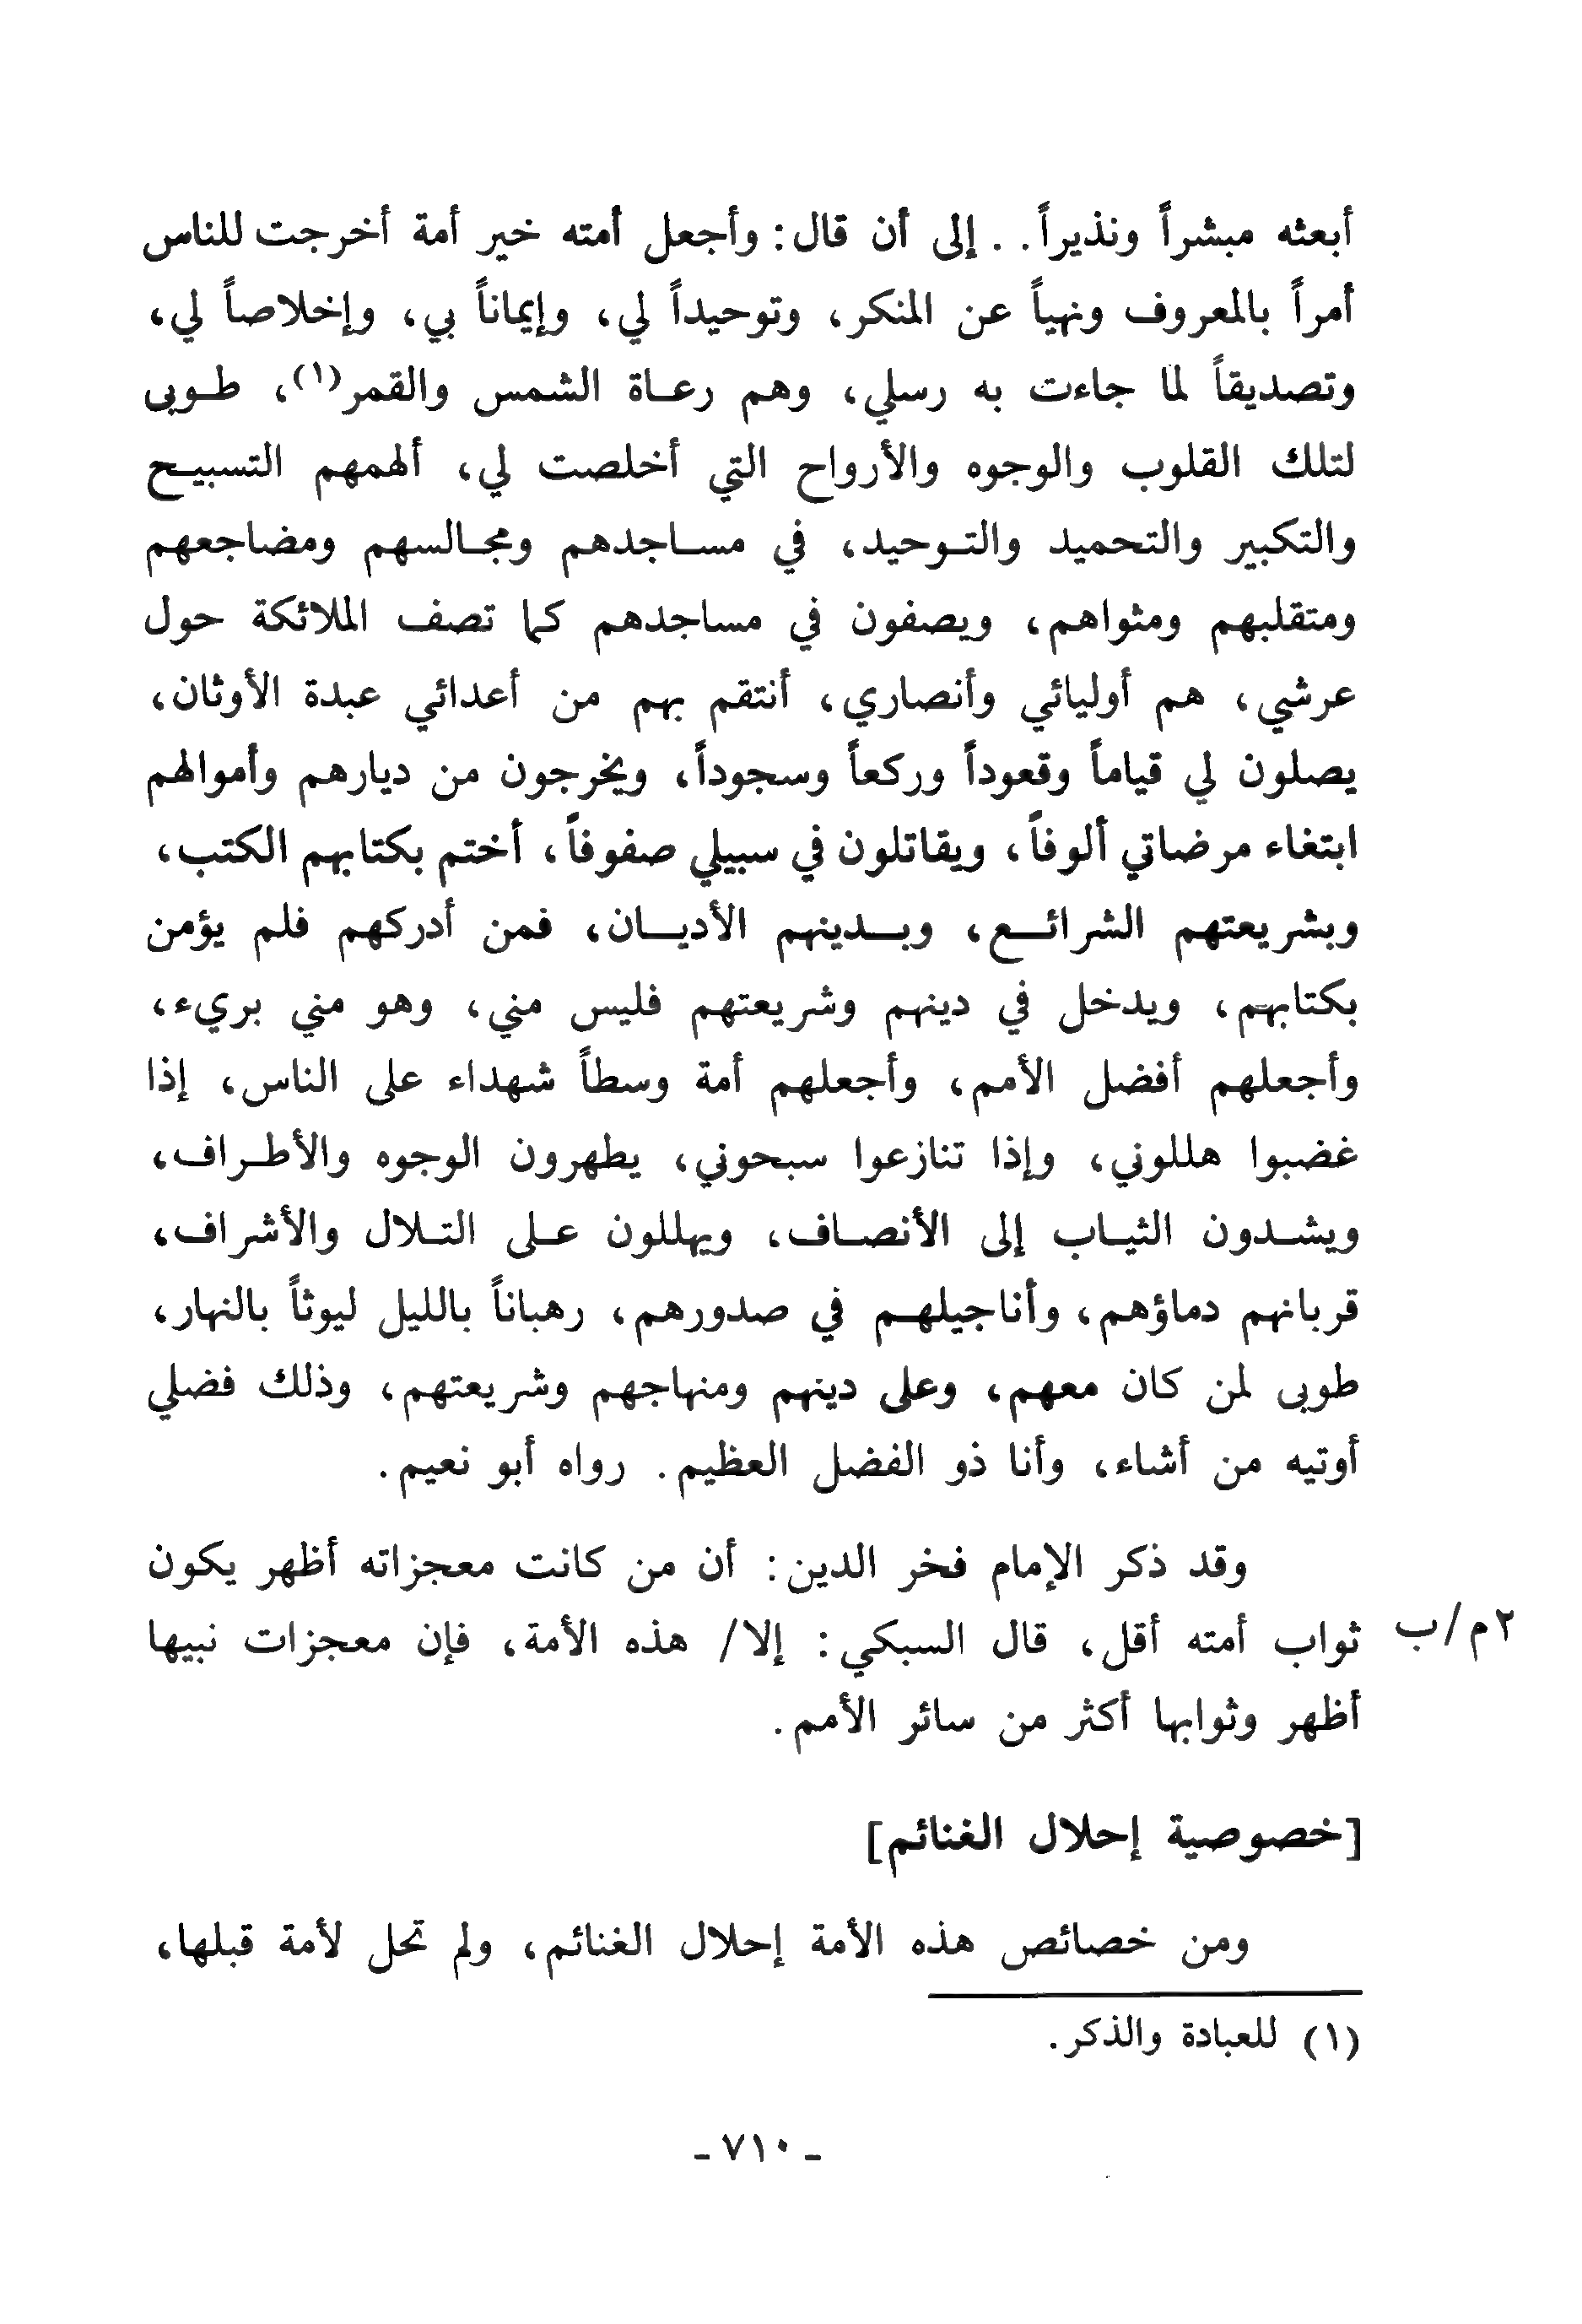 أبعثه مبشراً ونذيراً. . إلى أن قال: وأجعل أمته خير أمة أخرجت للناس
أمراً بالمعروف ونهياً عن المنكر، وتوحيداً لي، وإيماناً بي، وإخلاصاً لي،
وتصديقاً لما جاءت به رسلي، وهم رعاة الشمس والقمر(١)، طوبى
لتلك القلوب والوجوه والأرواح التي أخلصت لي، ألهمهم التسبيح
والتكبير والتحميد والتوحيد، في مساجدهم ومجالسهم ومضاجعهم
ومتقلبهم ومثواهم، ويصفون في مساجدهم كما تصف الملائكة حول
عرشي، هم أوليائي وأنصاري، أنتقم بهم من أعدائي عبدة الأوثان،
يصلون لي قياماً وقعوداً وركعاً وسجوداً، ويخرجون من ديارهم وأموالهم
ابتغاء مرضاتي ألوفاً، ويقاتلون في سبيلي صفوفاً، أختم بكتابهم الكتب،
وبشريعتهم الشرائع، وبدينهم الأديان، فمن أدركهم فلم يؤمن
بكتابهم، ويدخل في دينهم وشريعتهم فليس مني، وهو مني بريء،
وأجعلهم أفضل الأمم، وأجعلهم أمة وسطاً شهداء على الناس، إذا
غضبوا هللوني، وإذا تنازعوا سبحوني، يطهرون الوجوه والأطراف،
ويشدون الثياب إلى الأنصاف، ويهللون على التلال والأشراف،
قربانهم دماؤهم، وأناجيلهم في صدورهم، رهباناً بالليل ليوثاً بالنهار،
طوبى لمن كان معهم، وعلى دينهم ومنهاجهم وشريعتهم، وذلك فضلي
أوتيه من أشاء، وأنا ذو الفضل العظيم. رواه أبو نعيم.
وقد ذكر الإمام فخر الدين: أن من كانت معجزاته أظهر يكون
٢م/ب ثواب أمته أقل، قال السبكي: إلا/ هذه الأمة، فإن معجزات نبيها
أظهر وثوابها أكثر من سائر الأمم.
[خصوصية إحلال الغنائم]
ومن خصائص هذه الأمة إحلال الغنائم، ولم تحل لأمة قبلها،
(١) للعبادة والذكر.
- ٧١٠ -